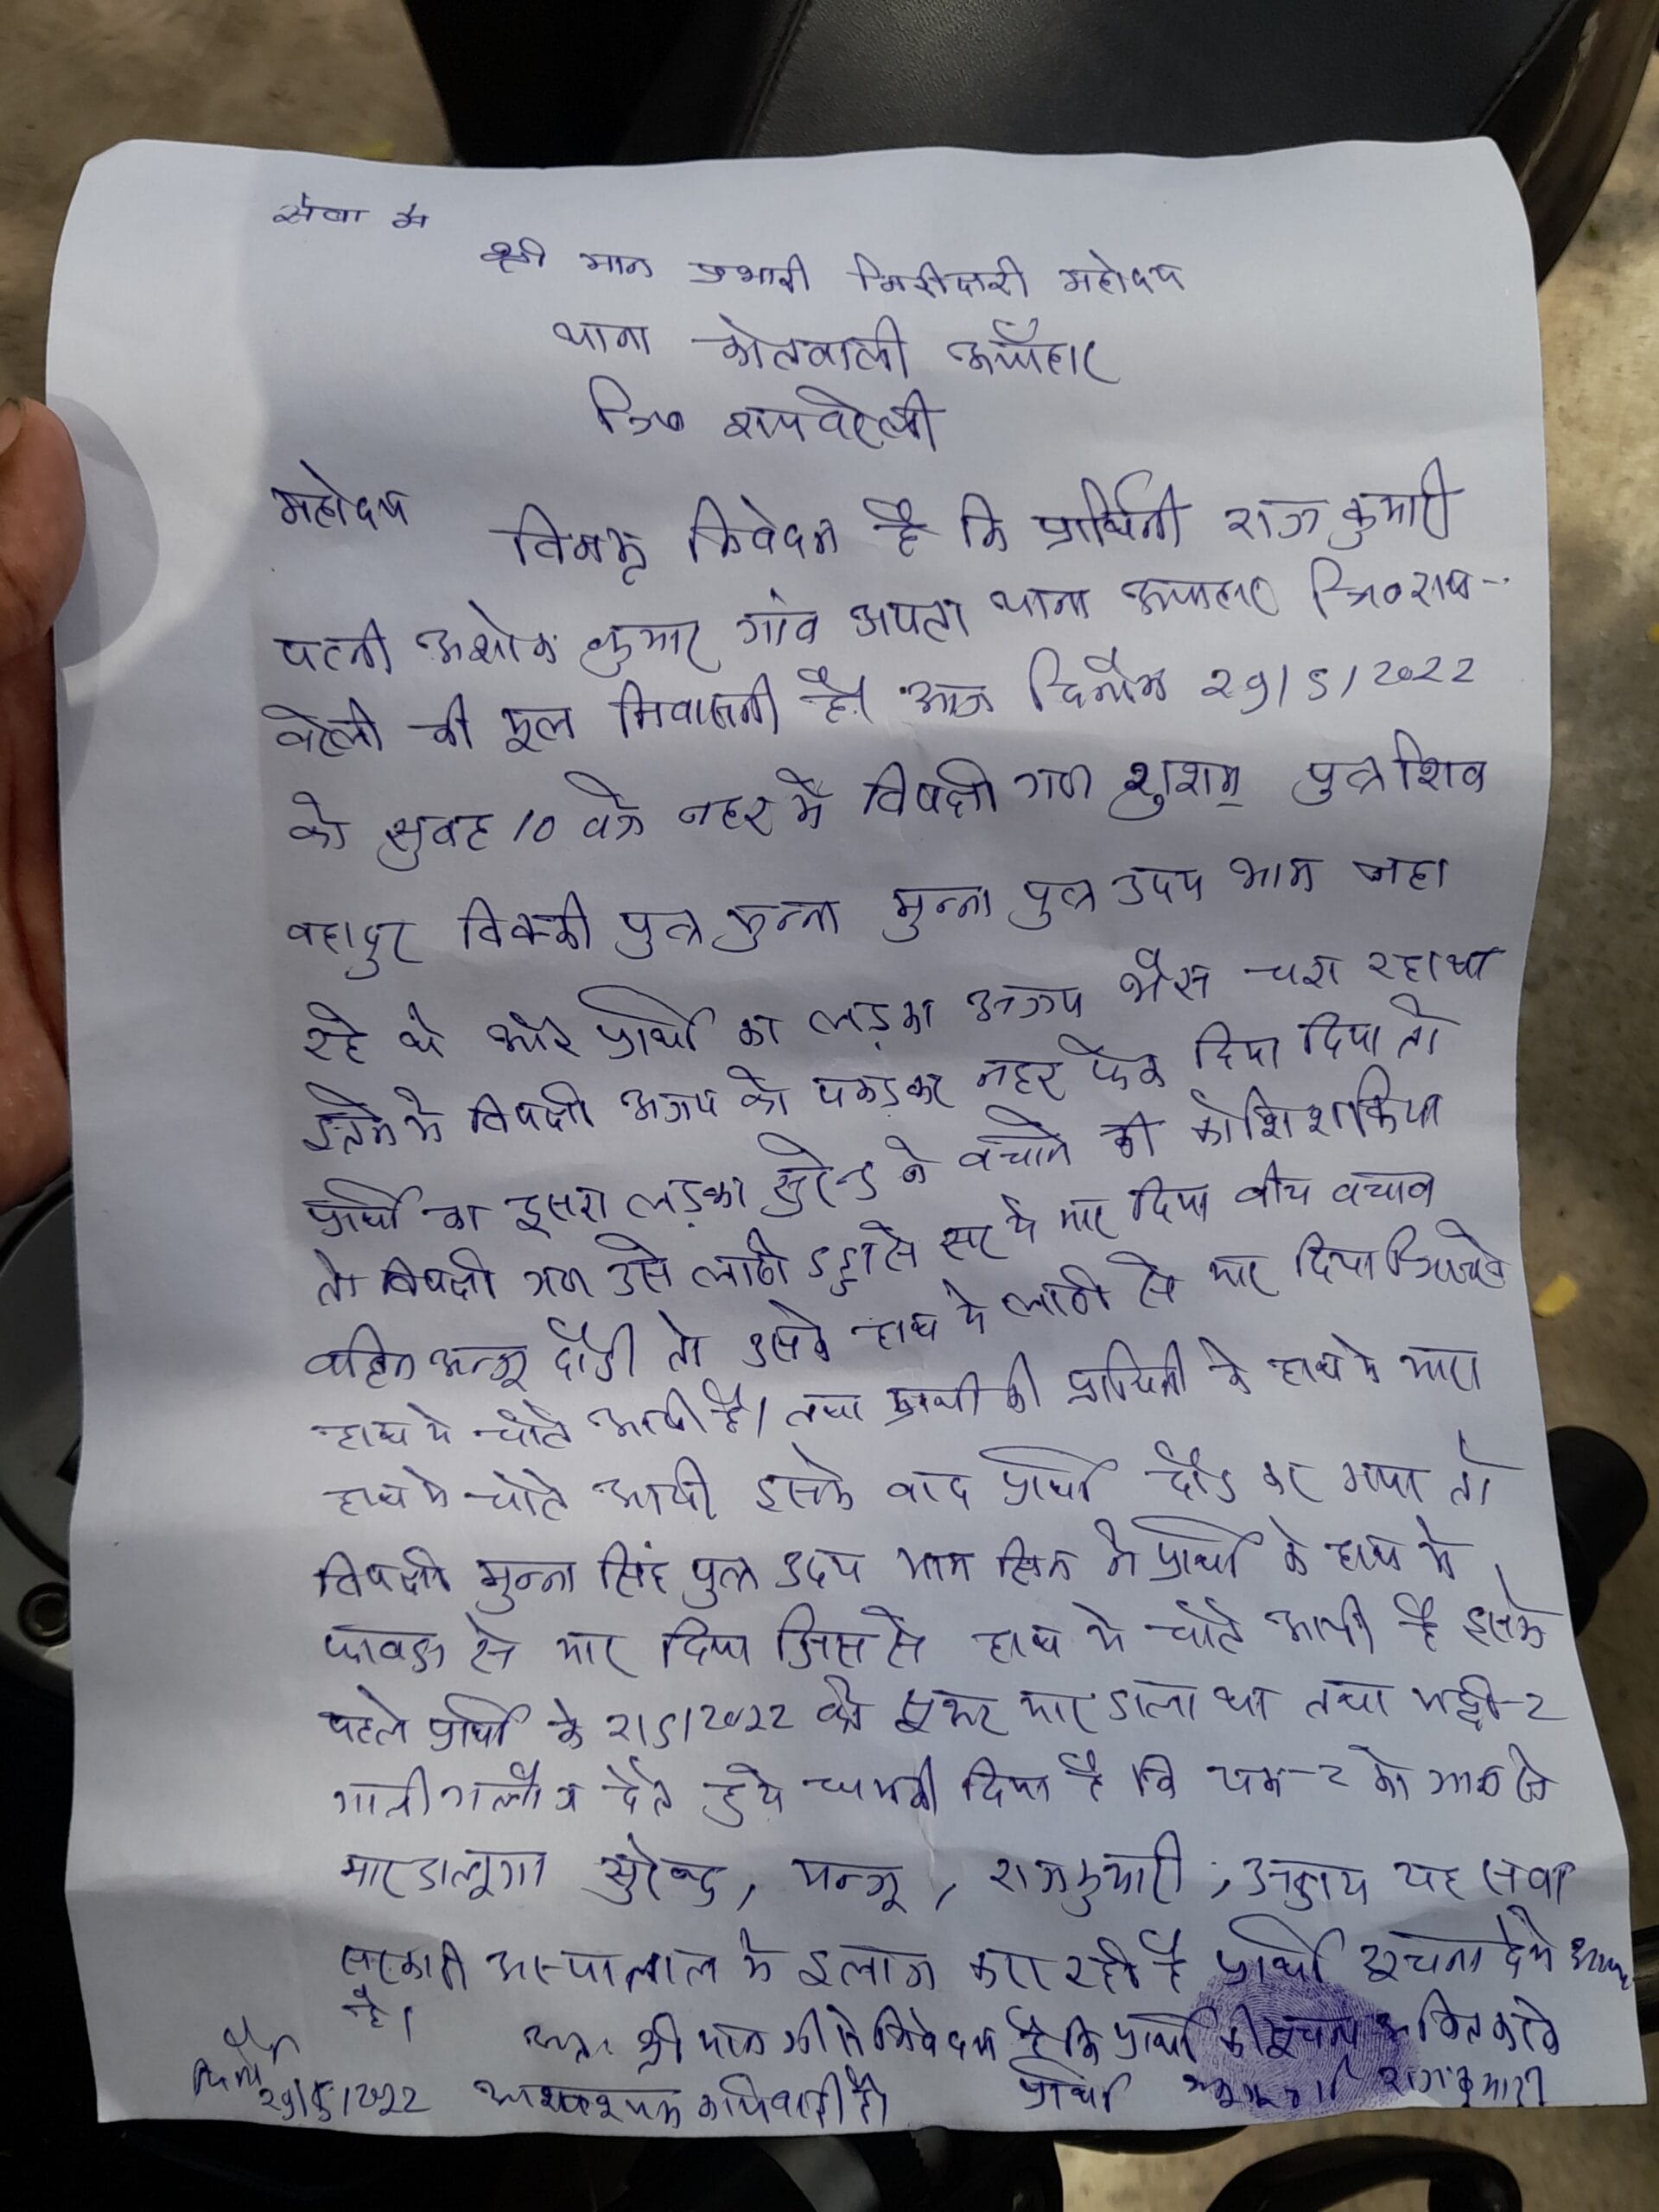 सेवा में
श्री मान प्रभारी निरीक्षक महोदय
थाना कोतवाली ऊँचाहार
जि० रायबरेली
महोदय
विनम्र निवेदन है कि प्रार्थिनी राजकुमारी
पत्नी अशोक कुमार गांव अपटा थाना ऊचाहार जि० राय-
बरेली की मूल निवासनी है। आज दिनाँक 29/5/2022
को सुबह 10 बजे नहर में विपक्षी गण शुशम् पुत्र शिव
बहादुर विक्की पुत्र मुन्ना मुन्ना पुत्र उदय भान नहा
रहे थे और प्रार्थी का लड़का अजय भैस चरा रहा था
इतने मे विपक्षी अजय को पकड़कर नहर फेक दिया दिया तो
प्रार्थी का दूसरा लड़का सुरेन्द्र ने बचाने की कोशिश किया
तो विपक्षी गण उसे लाठी डन्डा से सर मे मार दिया बीच बचाव
बहिन मन्जू दौड़ी तो उसके हाथ मे लाठी से मार दिया जिससे
हाथ मे चोटे आयी है। तथा प्रार्थिनी के हाथ मे मारा
हाथ मे चोटे आयी इसके बाद प्रार्थी दौड़ कर गया तो
विपक्षी मुन्ना सिंह पुत्र उदय भान सिंह ने प्रार्थी के हाथ मे
फावडा से मार दिया जिससे हाथ मे चोटे आयी है इसके
पहले प्रार्थी के 2/5/2022 को सूअर मार डाला था तथा भद्दी-2
गाली गलौज देते हुये धमकी दिया है कि एक-2 को जान से
मार डालूगा सुरेन्द्र, मन्जू, राजकुमारी, अजय यह सब
सरकारी अस्पालाल मे इलाज करा रही है प्रार्थी सूचना देने आया
है।
अतः श्री मान जी से निवेदन है कि प्रार्थी की सूचना अंकित करके
दिनाँक 29/5/2022 आवश्यक कार्यवाही हो। प्रार्थी राजकुमारी